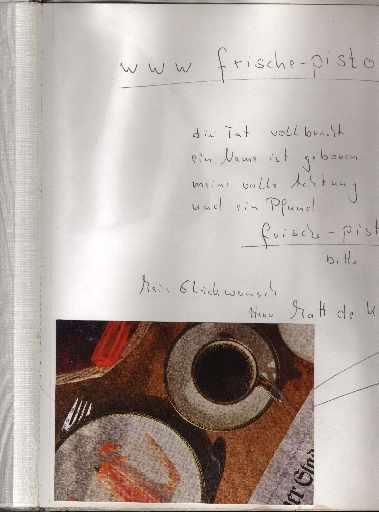 www frische-pisto
die Tat vollbracht
ein Name ist geboren
meine volle Achtung
und ein Pfund
frische-pist
bitte
Mein Glückwunsch
Herr Matt de K